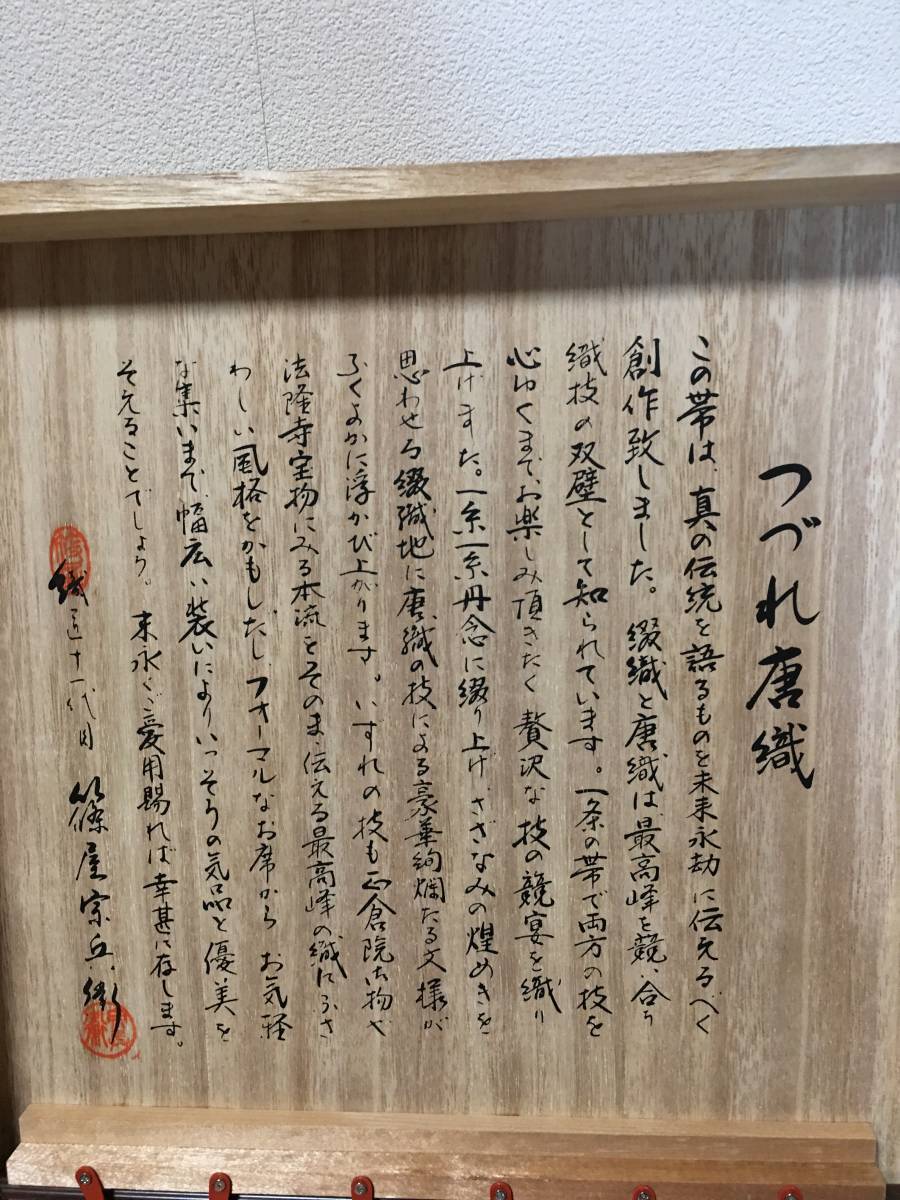 つづれ唐織
この帯は、真の伝統を語るものを未来永劫に伝えるべく
創作致しました。綴織と唐織は最高峰を競い合う
織技の双璧として知られています。一条の帯で両方の技を
心ゆくまでお楽しみ頂きたく贅沢な技の競宴を織り
上げました。一糸一糸丹念に綴り上げ、さざなみの煌めきを
思わせる綴織地に唐織の技による豪華絢爛たる文様が
ふくよかに浮かび上がります。いずれの技も正倉院御物や
法隆寺宝物にみる本流をそのまゝ伝える最高峰の織にふさ
わしい風格をかもしだし、フォーマルなお席からお気軽
な集いまで、幅広い装いによりいっそうの気品と優美を
そえることでしょう。末永くご愛用賜れば幸甚に存します。
織匠十一代目 篠屋宗兵衛